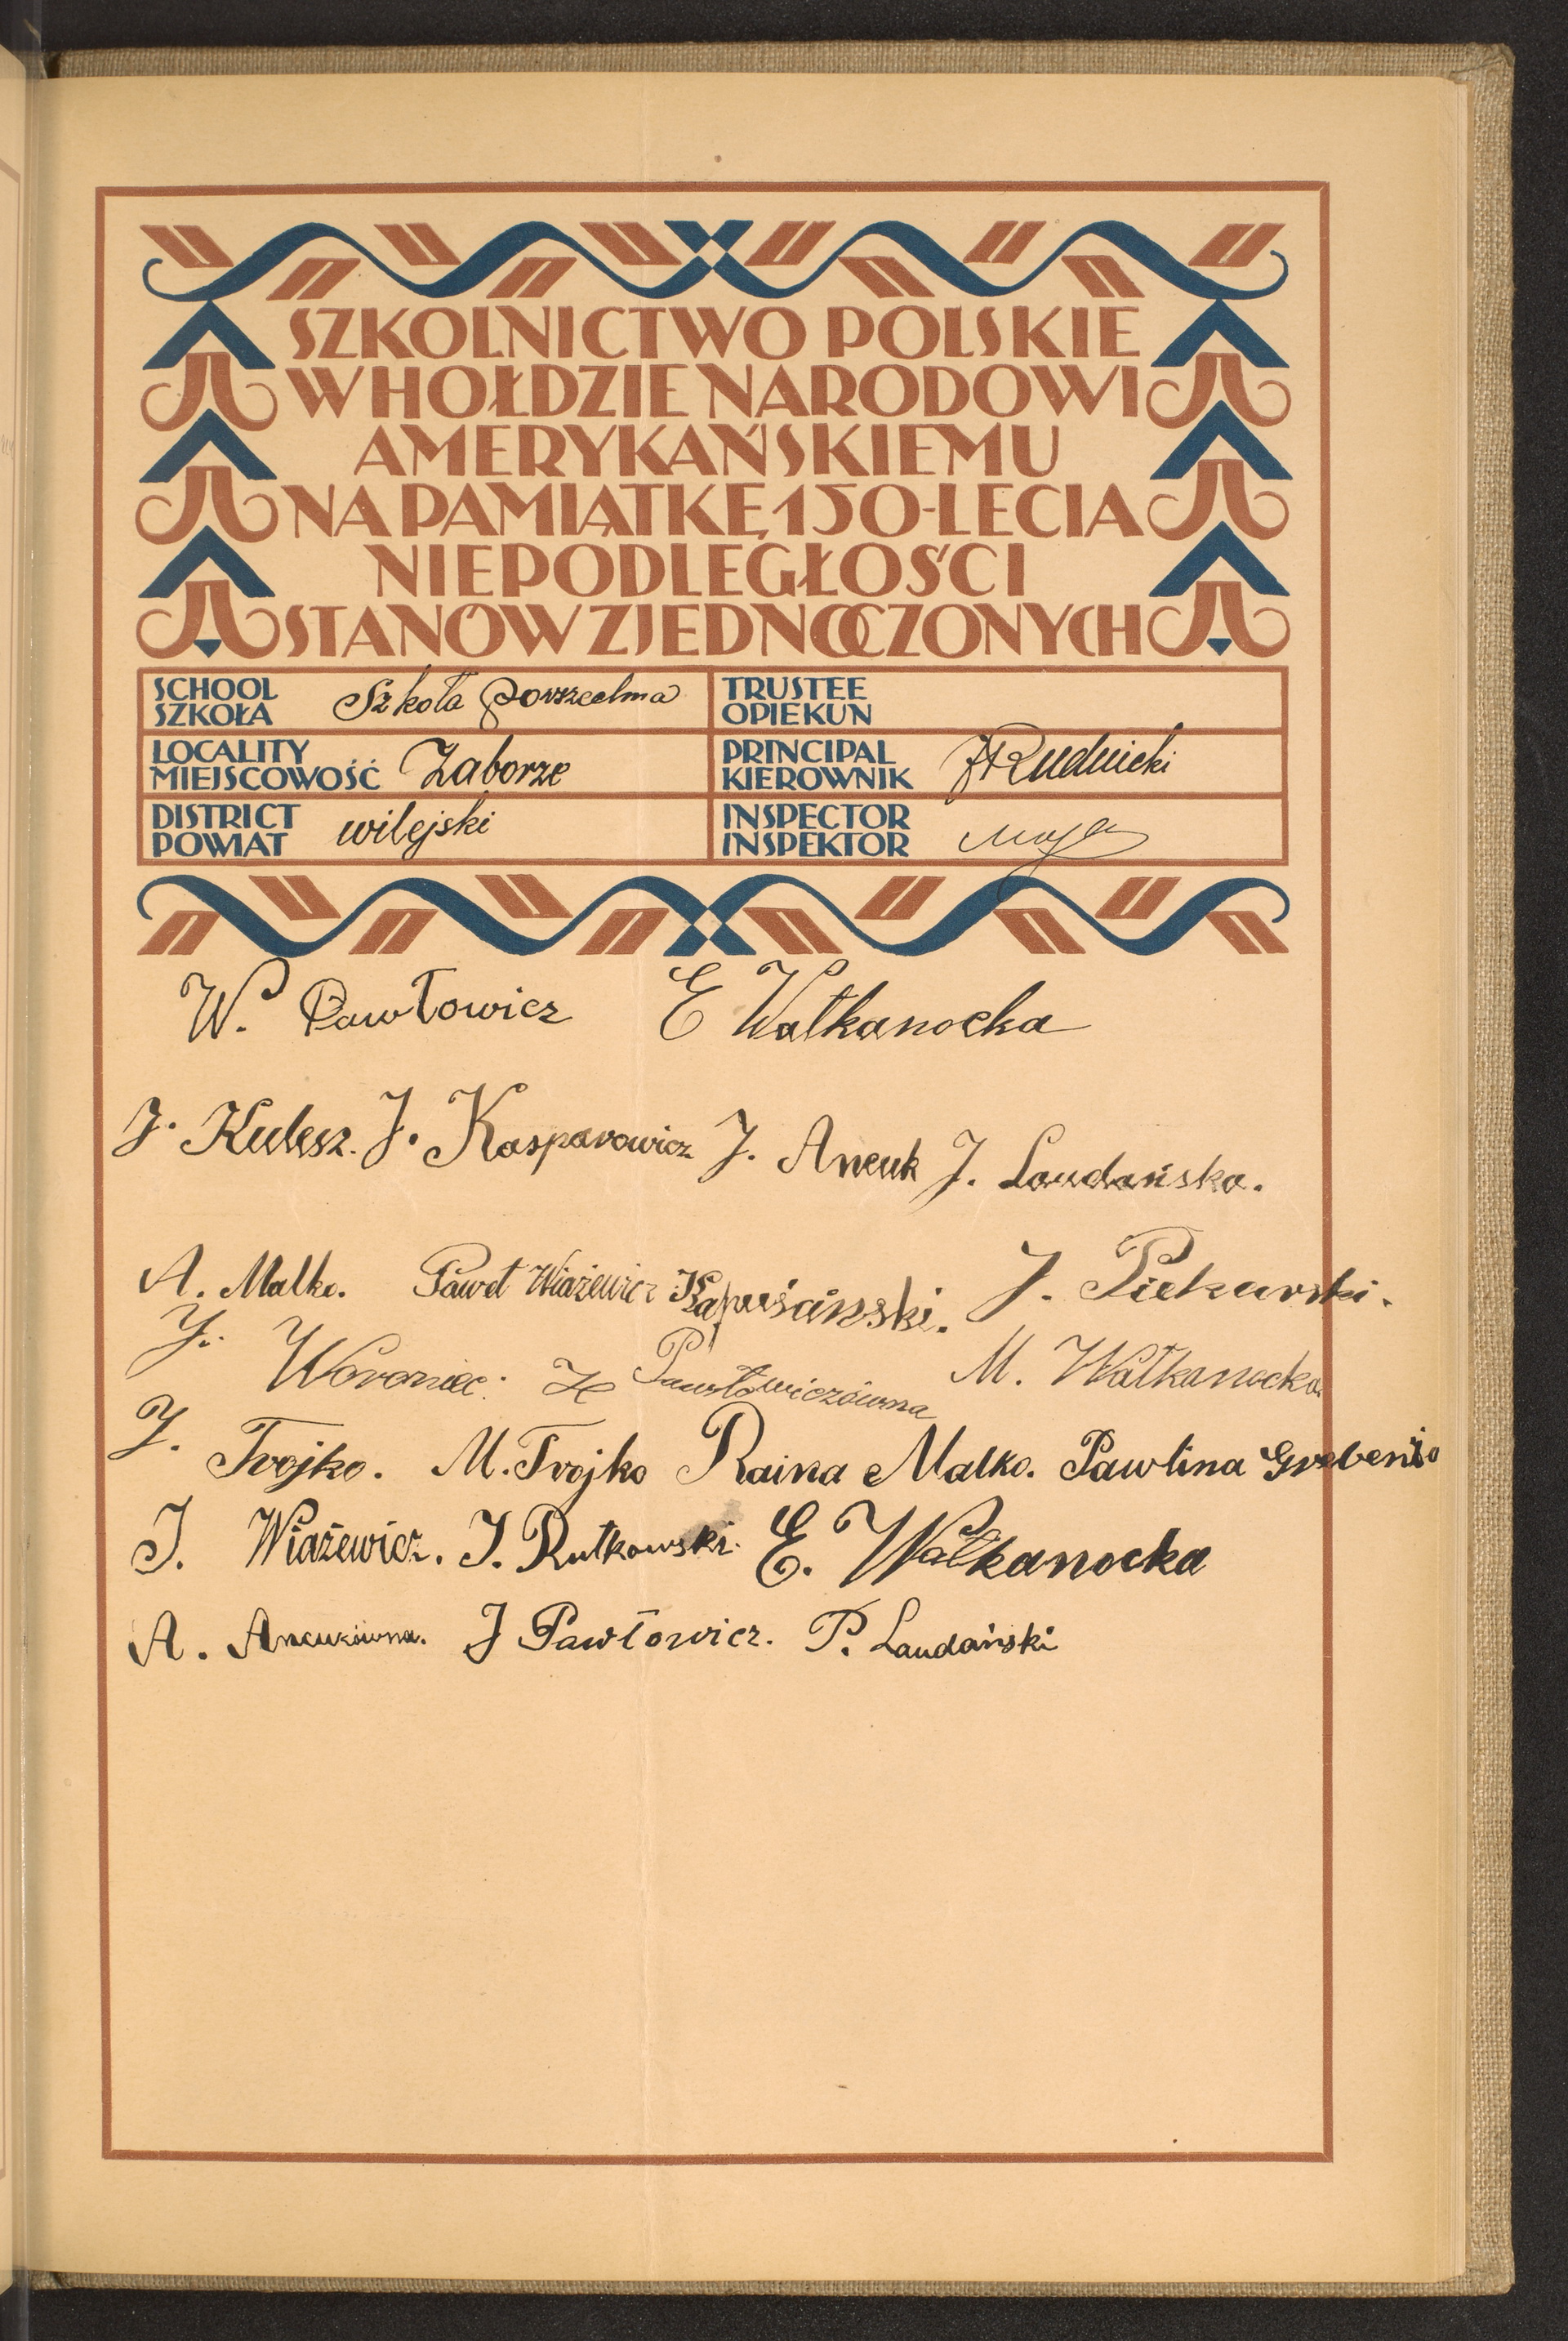 SZKOLNICTWO POLSKIE
W HOŁDZIE NARODOWI
AMERYKAŃSKIEMU
NA PAMIĄTKĘ 150-LECIA
NIEPODLEGŁOŚCI
STANÓW ZJEDNOCZONYCH
SCHOOL
SZKOŁA Szkoła Powszechna
TRUSTEE
OPIEKUN
LOCALITY
MIEJSCOWOŚĆ Zaborze
PRINCIPAL
KIEROWNIK JRudnicki
DISTRICT
POWIAT wilejski
INSPECTOR
INSPEKTOR
W. Pawłowicz E Wałkanocka
J. Kulesz. J. Kasparowicz J. Ancuk J. Laudańska.
A. Malko. Paweł Wiażewicz Kapuśański. J. Piekarski.
J. Woroniec. H Pawłowiczówna M. Wałkanocka
J. Trojko. M. Trojko Raina Malko. Pawlina
J. Wiażewicz. J. Rutkowski. E. Wałkanocka
A. Ancukówna. J Pawłowicz. P. Laudański